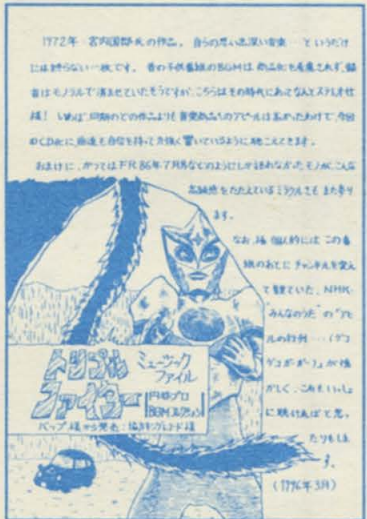 1972年 宮内国郎氏の作品。自らの思い出深い音楽…というだけ
には終らない一枚です。昔の子供番組のBGMは商品化も考慮されず、録
音はモノラルで済ませていたそうですが、こちらはその時代にあってなんとステレオ仕
様! いわば、同期のどの作品よりも音楽商品としてのアピールは高かったわけで、今回
のCD化に曲達も自信を持って力強く響いているように聴こえてきます。
おまけに、かつてはFR86年7月号などのようにしか語れなかったモノが、こんな
高級感をたたえているミラクルさも また参り
ます。
なお、個人的には この番
組のあとに チャンネルを変え
て観ていた、NHK・
"みんなのうた"の"アヒ
ルの行列…(ゲコ
ゲコガーガー)"が懐
かしく、これもいっしょ
に聴ければと思っ
たりもしま
す。
(1996年3月)
トリプル
ファイター
ミュージック
ファイル
円谷プロ
BGMコレクション
バップ様から発売:協力キングレコード様